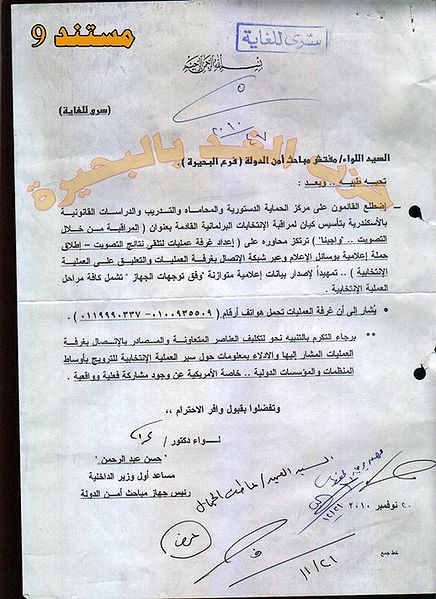 مستند 9
سرى للغاية
بسم الله الرحمن الرحيم
(سرى للغاية)
٢٠١٠
حزب الغد بالبحيرة
السيد اللواء/ مفتش مباحث أمن الدولة ( فرع البحيرة )
تحيه طيبه .. وبعد :
– إضطلع القائمون على مركز الحماية الدستورية والمحاماه والتدريب والدراسات القانونية
بالأسكندرية بتأسيس كيان لمراقبة الإنتخابات البرلمانية القادمة بعنوان ( المراقبة من خلال
التصويت .. واجبنا" ) ترتكز محاوره على ( إعداد غرفة عمليات لتلقى نتائج التصويت – إطلاق
حملة إعلامية بوسائل الإعلام وعبر شبكة الإتصال بغرفة العمليات والتعليق على العملية
الإنتخابية ) .. تمهيداً لإصدار بيانات إعلامية متوازنة "وفق توجهات الجهاز " تشمل كافة مراحل
العملية الإنتخابية .
• يُشار إلى أن غرفة العمليات تحمل هواتف أرقام ( ٠١٠٠٩٣٥٥٠٩ – ٠١١٩٩٩٠٣٣٧ ) .
** برجاء التكرم بالتنبيه نحو لتكليف العناصر المتعاونة والمصادر بالإتصال بغرفة
العمليات المشار إليها والادلاء بمعلومات حول سير العملية الإنتخابية للترويج بأوساط
المنظمات والمؤسسات الدولية .. خاصة الأمريكية عن وجود مشاركة فعلية وواقعية .
وتفضلوا بقبول وافر الاحترام ،،
لــواء دكتور/
" حسن عبد الرحمن "
مساعد أول وزير الداخلية
رئيس جهاز مباحث أمن الدولة
السيد العميد/
٢٠ نوفمبر ٢٠١٠
١١/٢١
خط جمع